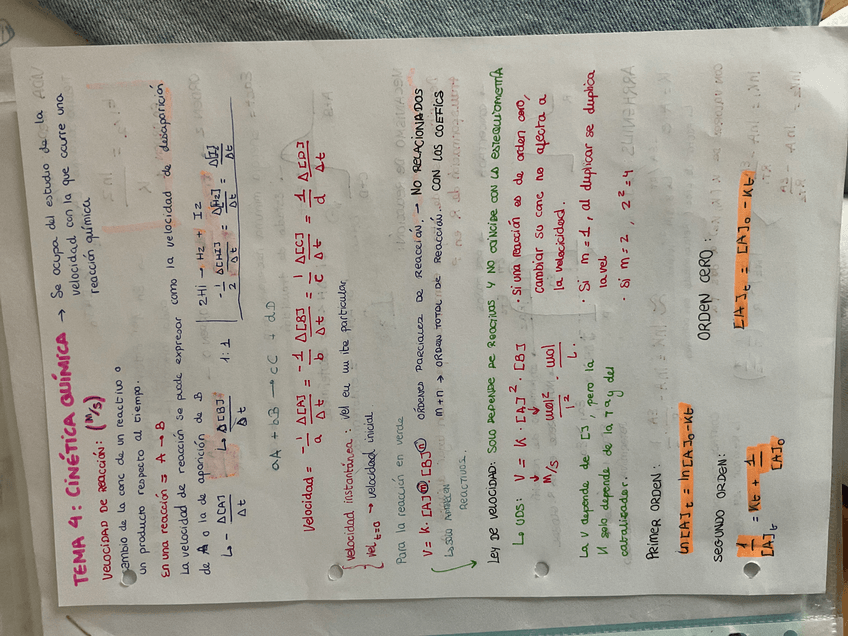 TEMA 4: CINÉTICA QUÍMICA → Se ocupa del estudio de la
velocidad con la que ocurre una
reacción química
VELOCIDAD DE REACCIÓN: (M/s)
Cambio de la conc de un reactivo o
un producto respecto al tiempo.
En una reacción ⇒ A → B
La velocidad de reacción se puede expresar como la velocidad de desaparición
de A o la de aparición de B
↳ - Δ[A]/Δt ↳ Δ[B]/Δt 1:1
2HI → H2 + I2
-1/2 Δ[HI]/Δt = Δ[H2]/Δt = Δ[I]/Δt
aA + bB → cC + dD
Velocidad = -1/a Δ[A]/Δt = -1/b Δ[B]/Δt = 1/c Δ[C]/Δt = 1/d Δ[D]/Δt
Velocidad instantánea: vel en un ite particular
Vel t=0 → velocidad inicial
Para la reacción en verde
V = K · [A]^m · [B]^n ÓRDENES PARCIALES DE REACCIÓN → NO RELACIONADOS
m+n → ORDEN TOTAL DE REACCIÓN. CON LOS COEFICS
↳ SÓLO APARECEN
REACTIVOS.
LEY DE VELOCIDAD: SOLO DEPENDE DE REACTIVOS Y NO COINCIDE CON LA ESTEQUIOMETRÍA
↳ UDS: V = K · [A]² · [B]
M/s mol²/l² mol/L
· Si una reacción es de orden cero,
cambiar su conc no afecta a
la velocicidad.
· Si m=1, al duplicar se duplica
la vel
· Si m=2, 2²=4
La V depende de [ ], pero la
K solo depende de la Tª y del
catalizador.
PRIMER ORDEN:
ln[A]t = ln[A]0 - Kt
ORDEN CERO:
[A]t = [A]0 - Kt
SEGUNDO ORDEN:
1/[A]t = Kt + 1/[A]0